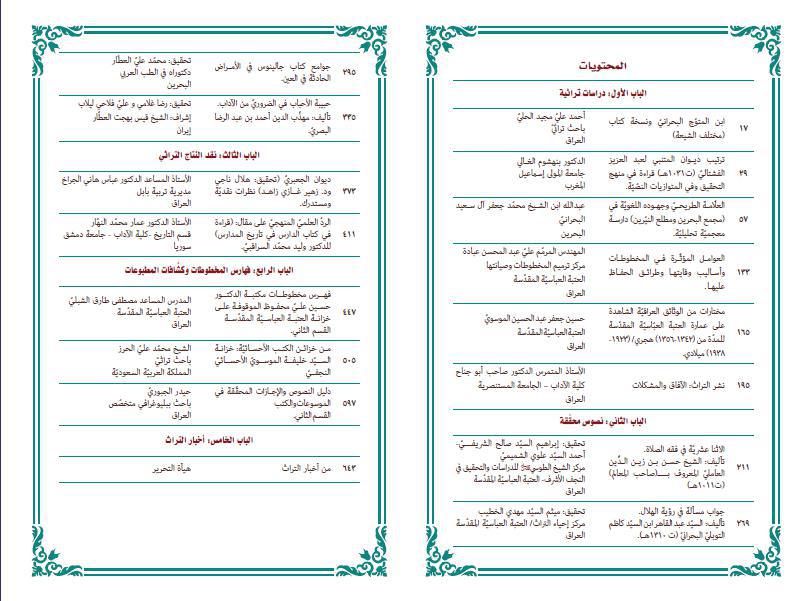 المحتويات
الباب الأول: دراسات تراثية
١٧
ابن المتوّج البحرانيّ ونسخة كتاب
(مختلف الشيعة)
أحمد عليّ مجيد الحليّ
باحث تراثيّ
العراق
٢٩
ترتيب ديوان المتنبي لعبد العزيز
الفشتاليّ (ت١٠٣١هـ) قراءة في منهج
التحقيق وفي المتوازيات النصّيّة.
الدكتور بنهشوم الغالي
جامعة المولى إسماعيل
المغرب
٥٧
العلّامة الطريحيّ وجهوده اللغويّة في
(مجمع البحرين ومطلع النيّرين) دارسة
معجميّة تحليليّة.
عبدالله ابن الشيخ محمّد جعفر آل سعيد
البحرانيّ
البحرين
١٣٣
العوامل المؤثّرة في المخطوطات
وأساليب وقايتها وطرائق الحفاظ
عليها.
المهندس المرمّم عليّ عبد المحسن عبادة
مركز ترميم المخطوطات وصيانتها
العتبة العباسيّة المقدّسة
العراق
١٦٥
مختارات من الوثائق العراقيّة الشاهدة
على عمارة العتبة العبّاسيّة المقدّسة
للمدّة من (١٣٤٢-١٣٥٦) هجري/ (١٩٢٣-
١٩٣٨) ميلادي.
حسين جعفر عبد الحسين الموسويّ
العتبة العباسيّة المقدّسة
العراق
١٩٥
نشر التراث: الآفاق والمشكلات
الأستاذ المتمرس الدكتور صاحب أبو جناح
كلية الآداب – الجامعة المستنصرية
العراق
الباب الثاني: نصوص محقّقة
٢١١
الاثنا عشريّة في فقه الصلاة.
تأليف: الشيخ حسن بن زين الدّين
العامليّ المعروف بـ(صاحب المعالم)
(ت١٠١١هـ)
تحقيق: إبراهيم السيّد صالح الشريفيّ-
أحمد السيّد علوي الشميميّ
مركز الشيخ الطوسيّ للدراسات والتحقيق في
النجف الأشرف- العتبة العباسيّة المقدّسة
العراق
٢٦٩
جواب مسألة في رؤية الهلال.
تأليف: السيّد عبد القاهر ابن السيّد كاظم
التوبليّ البحرانيّ (ت ١٣١٠هـ).
تحقيق: ميثم السيّد مهدي الخطيب
مركز إحياء التراث/ العتبة العباسيّة المقدّسة
العراق
٢٩٥
جوامع كتاب جالينوس في الأمراض
الحادثة في العين.
تحقيق: محمّد عليّ العطّار
دكتوراه في الطب العربي
البحرين
٣٣٥
حبيبة الأحباب في الضروريّ من الآداب.
تأليف: مهذّب الدين أحمد بن عبد الرضا
البصريّ.
تحقيق: رضا غلامي و عليّ فلاحي ليلاب
إشراف: الشيخ قيس بهجت العطّار
إيران
الباب الثالث: نقد النتاج التراثي
٣٧٣
ديوان الجعبريّ (تحقيق: هلال ناجي
ود. زهير غازي زاهد) نظرات نقديّة
ومستدرك.
الأستاذ المساعد الدكتور عباس هاني الجراخ
مديرية تربية بابل
العراق
٤١١
الردّ العلميّ المنهجيّ على مقال: (قراءة
في كتاب الدارس في تاريخ المدارس)
للدكتور وليد محمّد السراقبيّ.
الأستاذ الدكتور عمار محمّد النهّار
قسم التاريخ -كلية الآداب - جامعة دمشق
سوريا
الباب الرابع: فهارس المخطوطات وكشّافات المطبوعات
٤٤٧
فهرس مخطوطات مكتبة الدكتور
حسين عليّ محفوظ الموقوفة على
خزانة العتبة العباسيّة المقدّسة
القسم الثاني.
المدرس المساعد مصطفى طارق الشبليّ
العتبة العباسيّة المقدّسة
العراق
٥٠٥
من خزائن الكتب الأحسائيّة: خزانة
السيّد خليفة الموسويّ الأحسائيّ
النجفيّ
الشيخ محمّد عليّ الحرز
باحث تراثيّ
المملكة العربيّة السعوديّة
٥٩٧
دليل النصوص والإجازات المحقّقة في
الموسوعات والكتب
القسم الثاني.
حيدر الجبوريّ
باحث ببليوغرافي متخصّص
العراق
الباب الخامس: أخبار التراث
٦٤٣
من أخبار التراث
هيأة التحرير